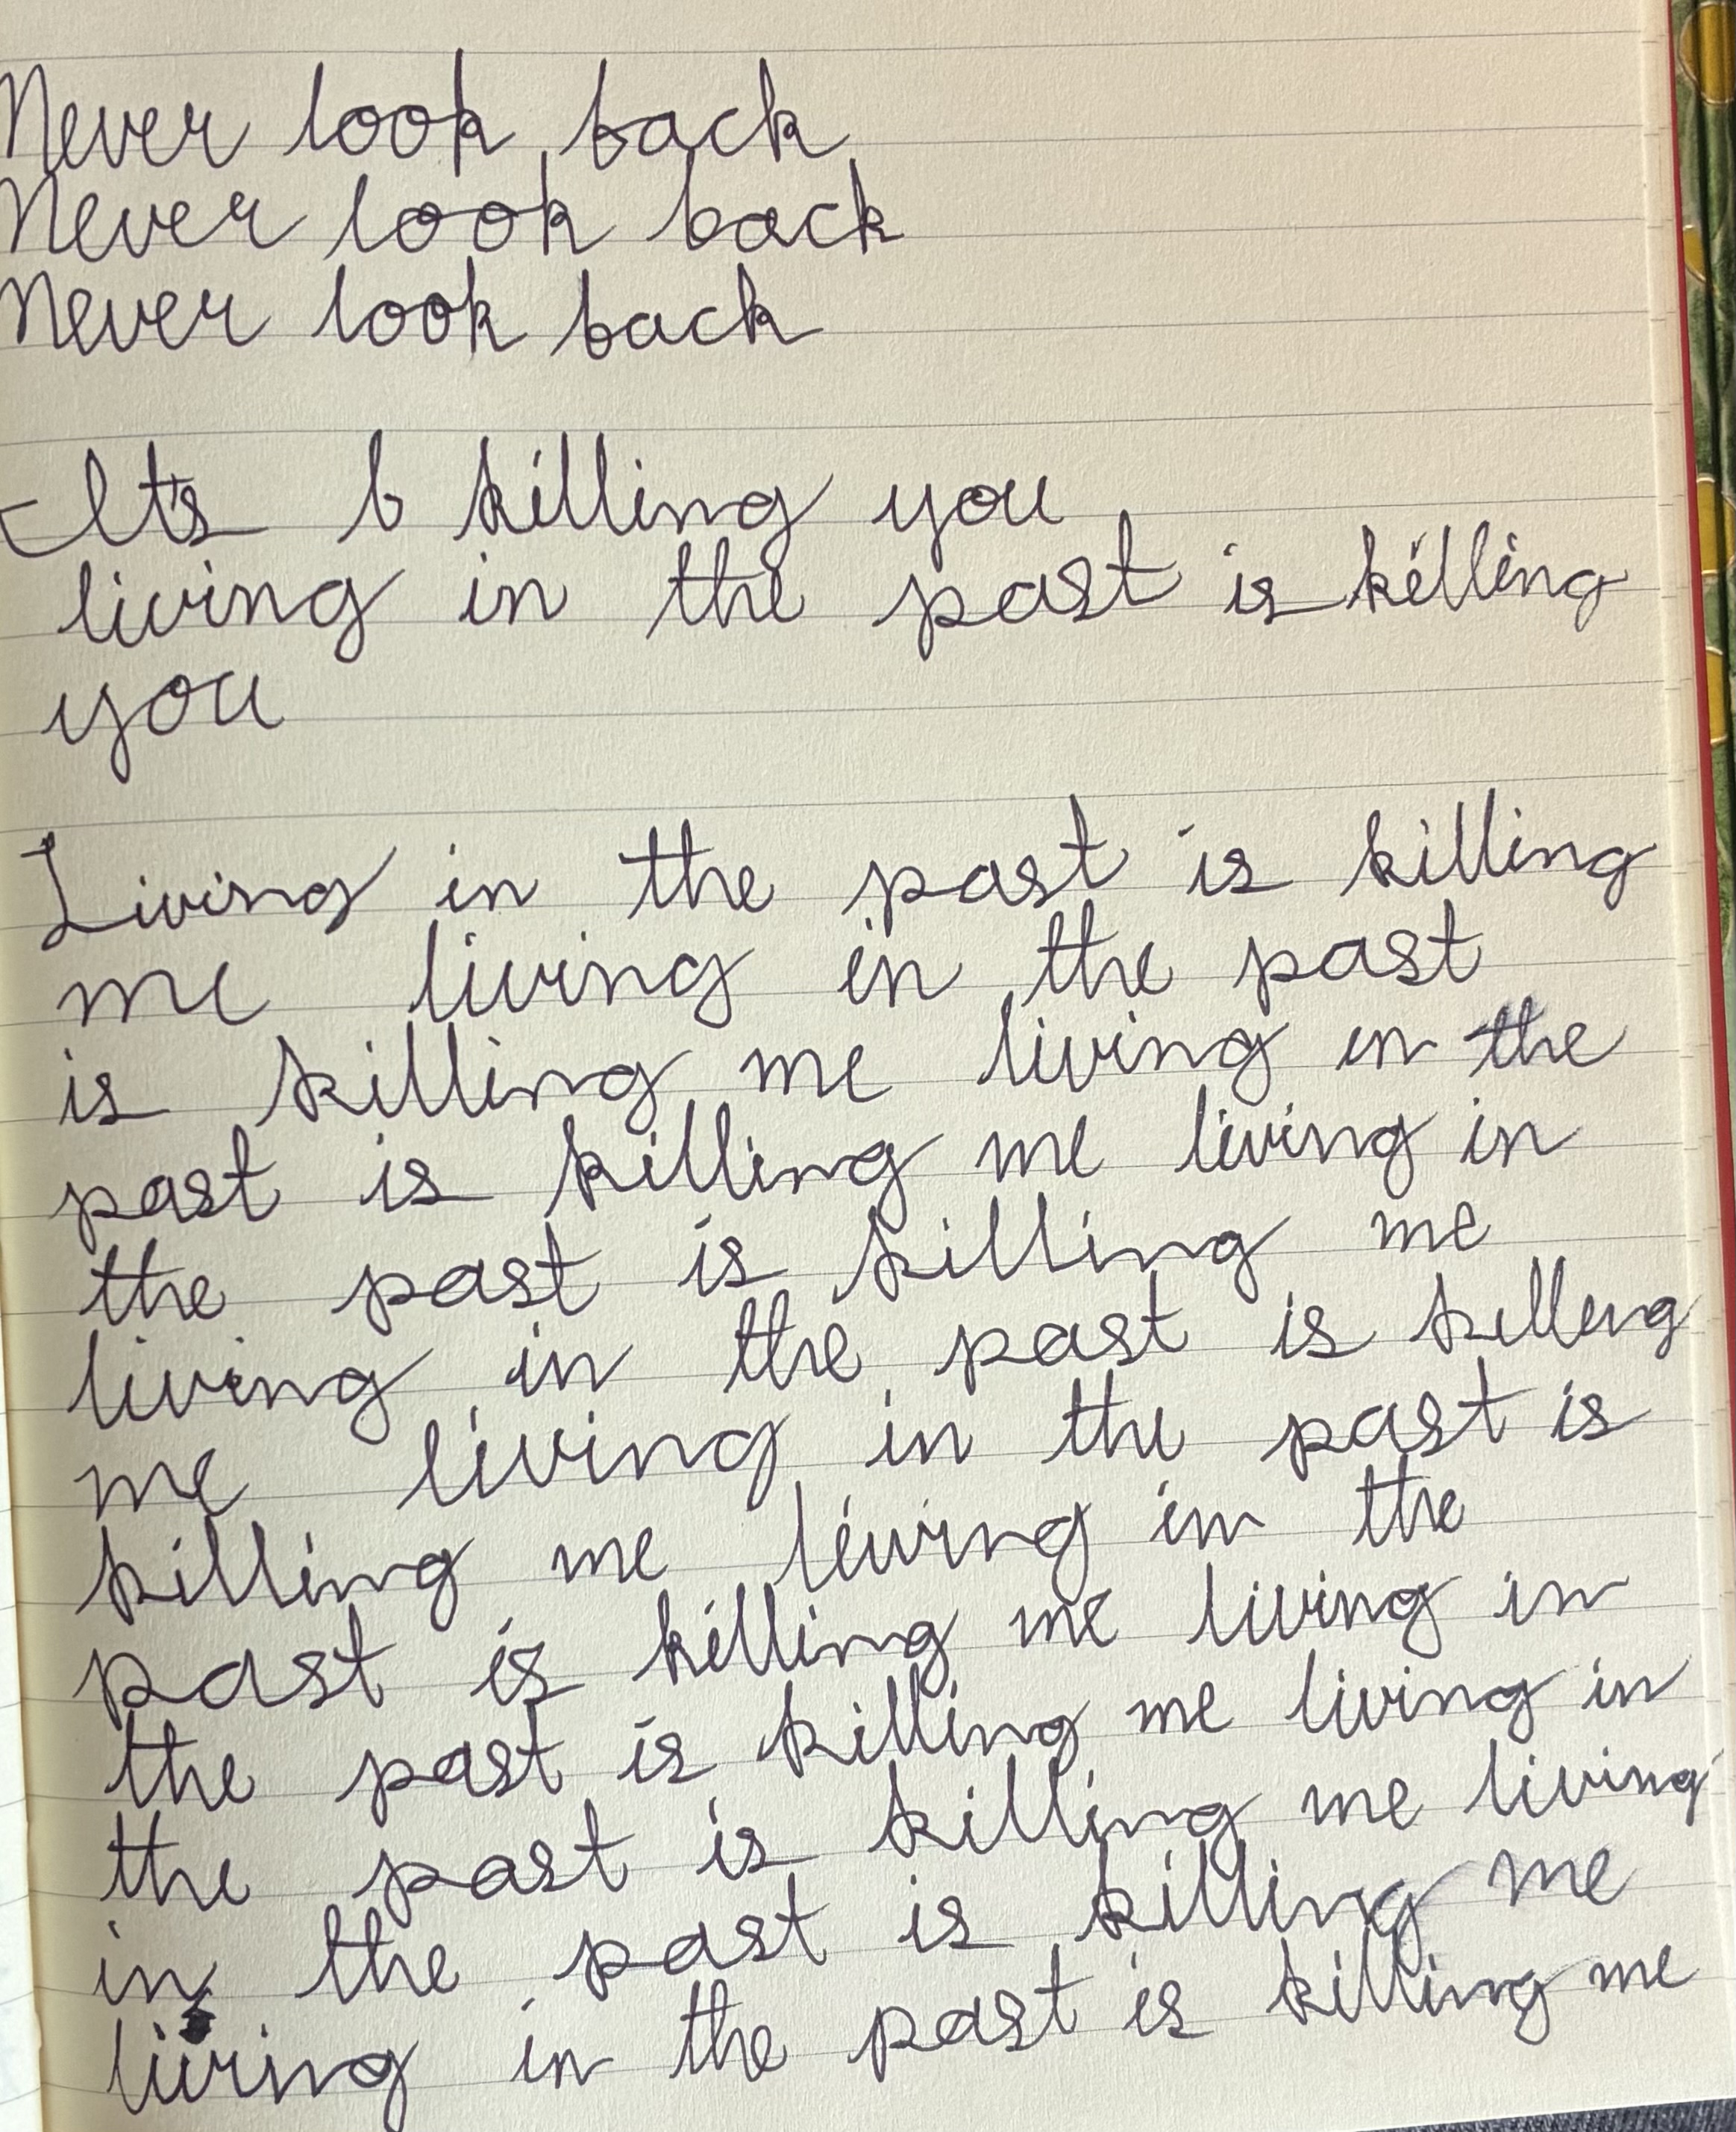 Never look back
Never look back
Never look back
It's b killing you
living in the past is killing
you
Living in the past is killing
me living in the past
is killing me living in the
past is killing me living in
the past is killing me
living in the past is killing
me living in the past is
killing me living in the
past is killing me living in
the past is killing me living in
the past is killing me living
in the past is killing me
living in the past is killing me